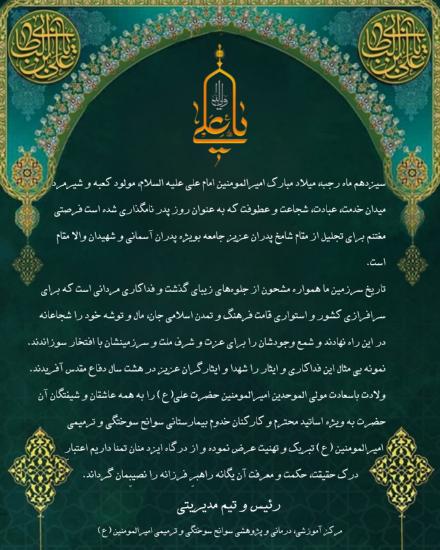 یا علی بن ابیطالب
یا علی بن ابیطالب
یا علی
ولی الله
سیزدهم ماه رجب، میلاد مبارک امیرالمومنین امام علی علیه السلام، مولود کعبه و شیرمرد
میدان خدمت، عبادت، شجاعت و عطوفت که به عنوان روز پدر نامگذاری شده است فرصتی
مغتنم برای تجلیل از مقام شامخ پدران عزیز جامعه بویژه پدران آسمانی و شهیدان والا مقام
است.
تاریخ سرزمین ما همواره مشحون از جلوه‌های زیبای گذشت و فداکاری مردانی است که برای
سرافرازی کشور و استواری قامت فرهنگ و تمدن اسلامی جان، مال و توشه خود را شجاعانه
در این راه نهادند و شمع وجودشان را برای عزت و شرف ملت و سرزمینشان با افتخار سوزاندند.
نمونه بی مثال این فداکاری و ایثار را شهدا و ایثارگران عزیز در هشت سال دفاع مقدس آفریدند.
ولادت باسعادت مولی الموحدین امیرالمومنین حضرت علی(ع) را به همه عاشقان و شیفتگان آن
حضرت به ویژه اساتید محترم و کارکنان خدوم بیمارستانی سوانح سوختگی و ترمیمی
امیرالمومنین (ع) تبریک و تهنیت عرض نموده و از درگاه ایزد منان تمنا داریم اعتبار
درک حقیقت، حکمت و معرفت آن یگانه راهبر فرزانه را نصیبمان گرداند.
رئیس و تیم مدیریتی
مرکز آموزشی، درمانی و پژوهشی سوانح سوختگی و ترمیمی امیرالمومنین (ع)